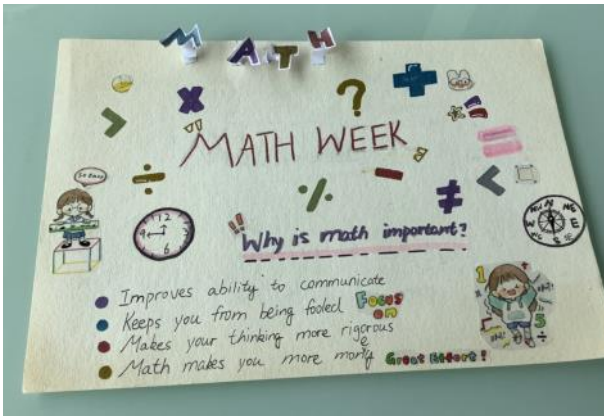 MATH
× ? + * =
>
MATH WEEK
So Easy
÷ % − ≠ <
12
9
6
!! Why is math important?
Improves ability to communicate
Keeps you from being fooled Focus on
Makes your thinking more rigorous
Math makes you more money Great Effort!
1
5
÷